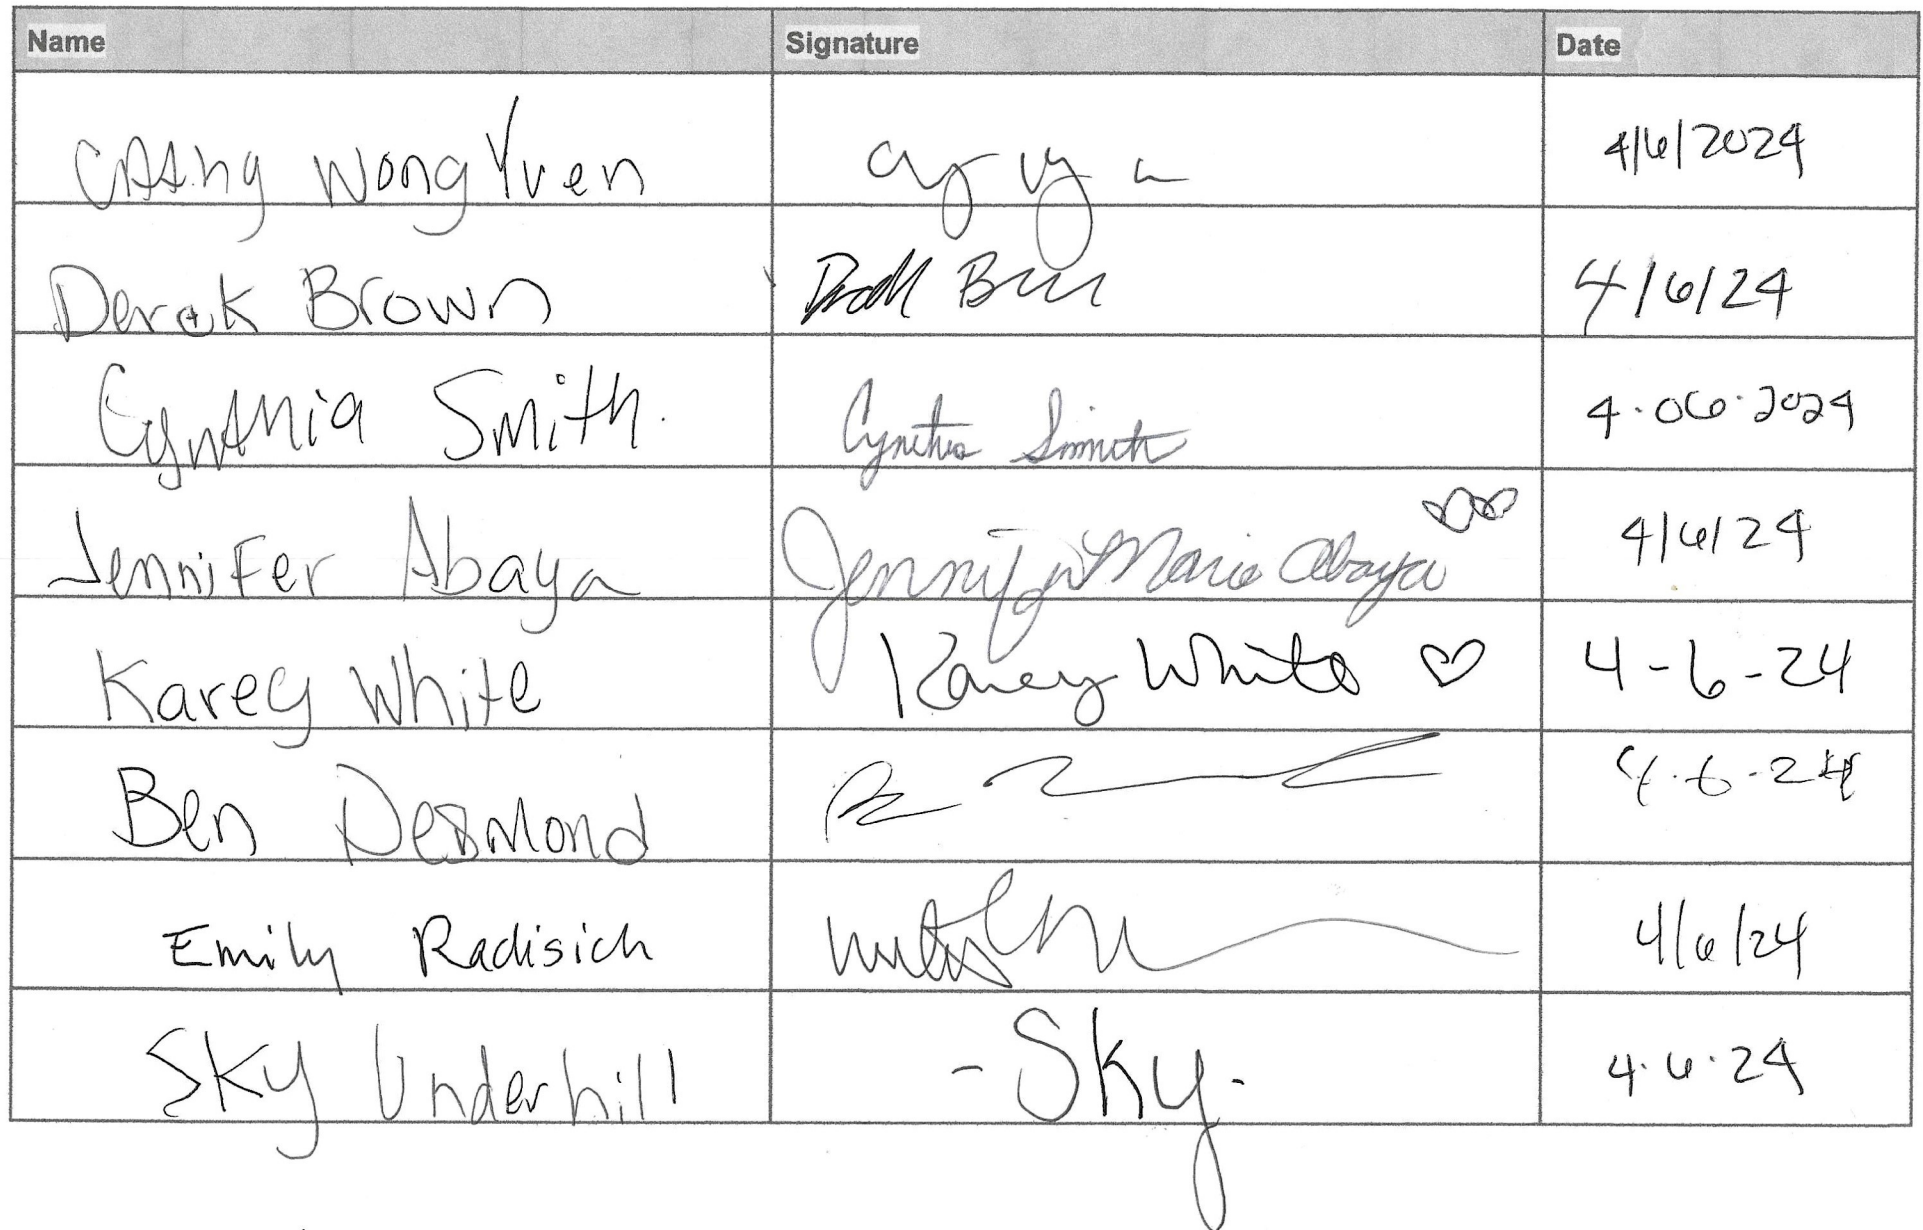 Name Signature Date
Wong Yuen 4/6/2024
Derek Brown 4/6/24
Cynthia Smith. Cynthia Smith 4.06.2024
Jennifer Abaya Jennifer Marie Abaya 4/6/24
Karey White Karey White 4-6-24
Ben Desmond 4.6.24
Emily Radisich 4/6/24
Sky Underhill -Sky. 4.6.24